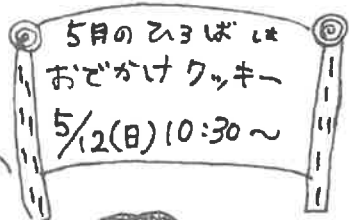 5月のひろばは
おでかけクッキー
5/12(日)10:30〜